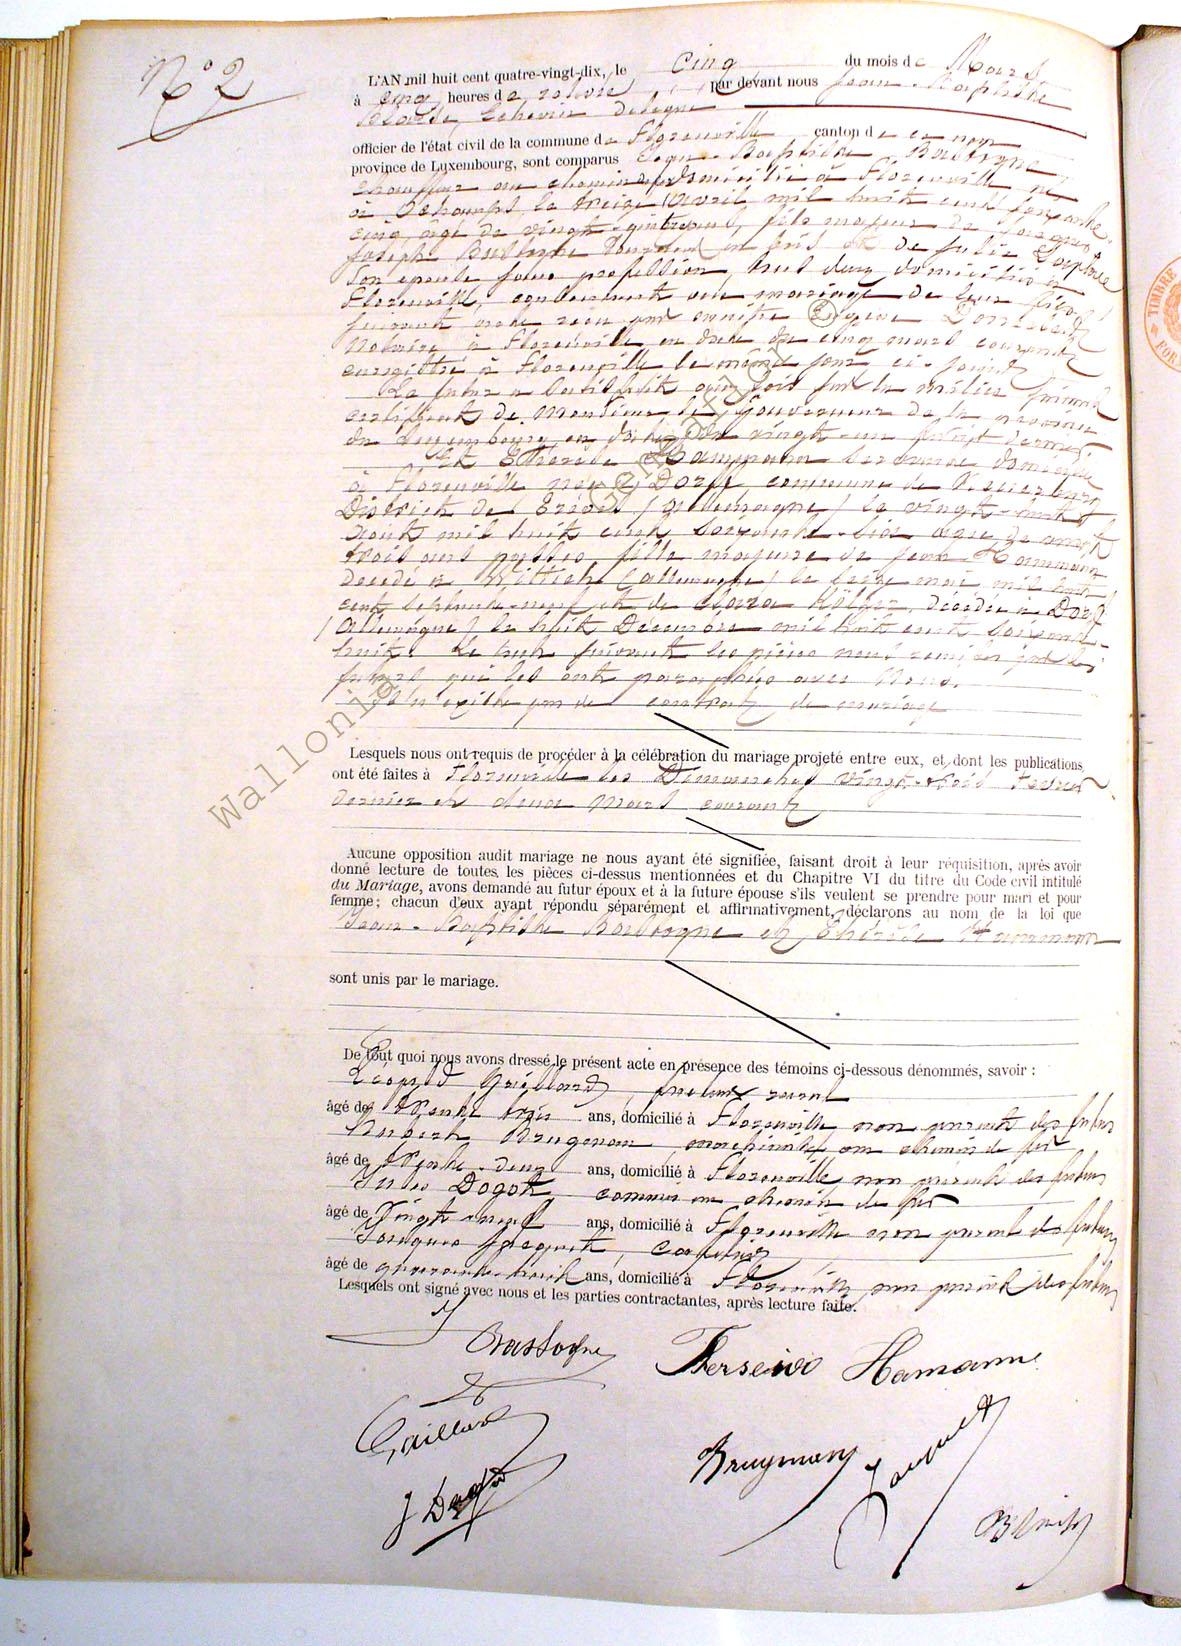 N° 2
L'AN mil huit cent quatre-vingt-dix, le cinq du mois de Mars
à cinq heures de relevée par devant nous Jean-Baptiste
Echevin délégué
officier de l'état civil de la commune de Florenville canton de ce nom
province de Luxembourg, sont comparus Jean-Baptiste Bastogne
au chemin de fer domicilié à Florenville né
à le treize avril mil huit cent soixante
cinq âgé de vingt-quatre ans, fils majeur de Jacques
Joseph Bastogne et de Julie
son épouse sans profession, tous deux domiciliés à
Florenville, consentant au mariage de leur fils
suivant acte reçu par maître Eugène
Notaire à Florenville en date du cinq mars courant
enregistré à Florenville le même jour ci-joint
Le futur a satisfait aux lois sur la milice suivant
certificat de Monsieur le Gouverneur de la province
de Luxembourg en date du vingt-un dernier
Et Thérèse Hammann servante domiciliée
à Florenville née à Dorf commune de
District de Trèves (Allemagne) le vingt-huit
août mil huit cent soixante-six âgée de vingt
trois ans passés, fille majeure de Jean Hammann
décédé à Wittlich (allemagne) le seize mai mil huit
cent septante-neuf et de Clara décédée à Dorf
(Allemagne) le huit Décembre mil huit cent soixante
huit. Le tout suivant les pièces nous remises par les
futurs qui les ont paraphées avec Nous.
Il n'existe pas de contrat de mariage
Lesquels nous ont requis de procéder à la célébration du mariage projeté entre eux, et dont les publications
ont été faites à Florenville les Dimanches vingt-trois Février
dernier et deux Mars courant
Aucune opposition audit mariage ne nous ayant été signifiée, faisant droit à leur réquisition, après avoir
donné lecture de toutes les pièces ci-dessus mentionnées et du Chapitre VI du titre du Code civil intitulé
du Mariage, avons demandé au futur époux et à la future épouse s'ils veulent se prendre pour mari et pour
femme; chacun d'eux ayant répondu séparément et affirmativement, déclarons au nom de la loi que
Jean-Baptiste Bastogne et Thérèse Hammann
sont unis par le mariage.
De tout quoi nous avons dressé le présent acte en présence des témoins ci-dessous dénommés, savoir :
Léopold Gaillard, facteur rural
âgé de trente trois ans, domicilié à Florenville non parent des futurs
Hubert Brugman machiniste au chemin de fer
âgé de trente-deux ans, domicilié à Florenville non parent des futurs
Jules Dogot commis au chemin de fer
âgé de Vingt-neuf ans, domicilié à Florenville non parent des futurs
Jacques Jacquet,
âgé de quarante-huit ans, domicilié à Florenville non parent des futurs
Lesquels ont signé avec nous et les parties contractantes, après lecture faite.
J Bastogne
Hamann
Gaillard
Brugman
Jacquet
J Dogot
Wallonie
Geneanet
TIMBRE